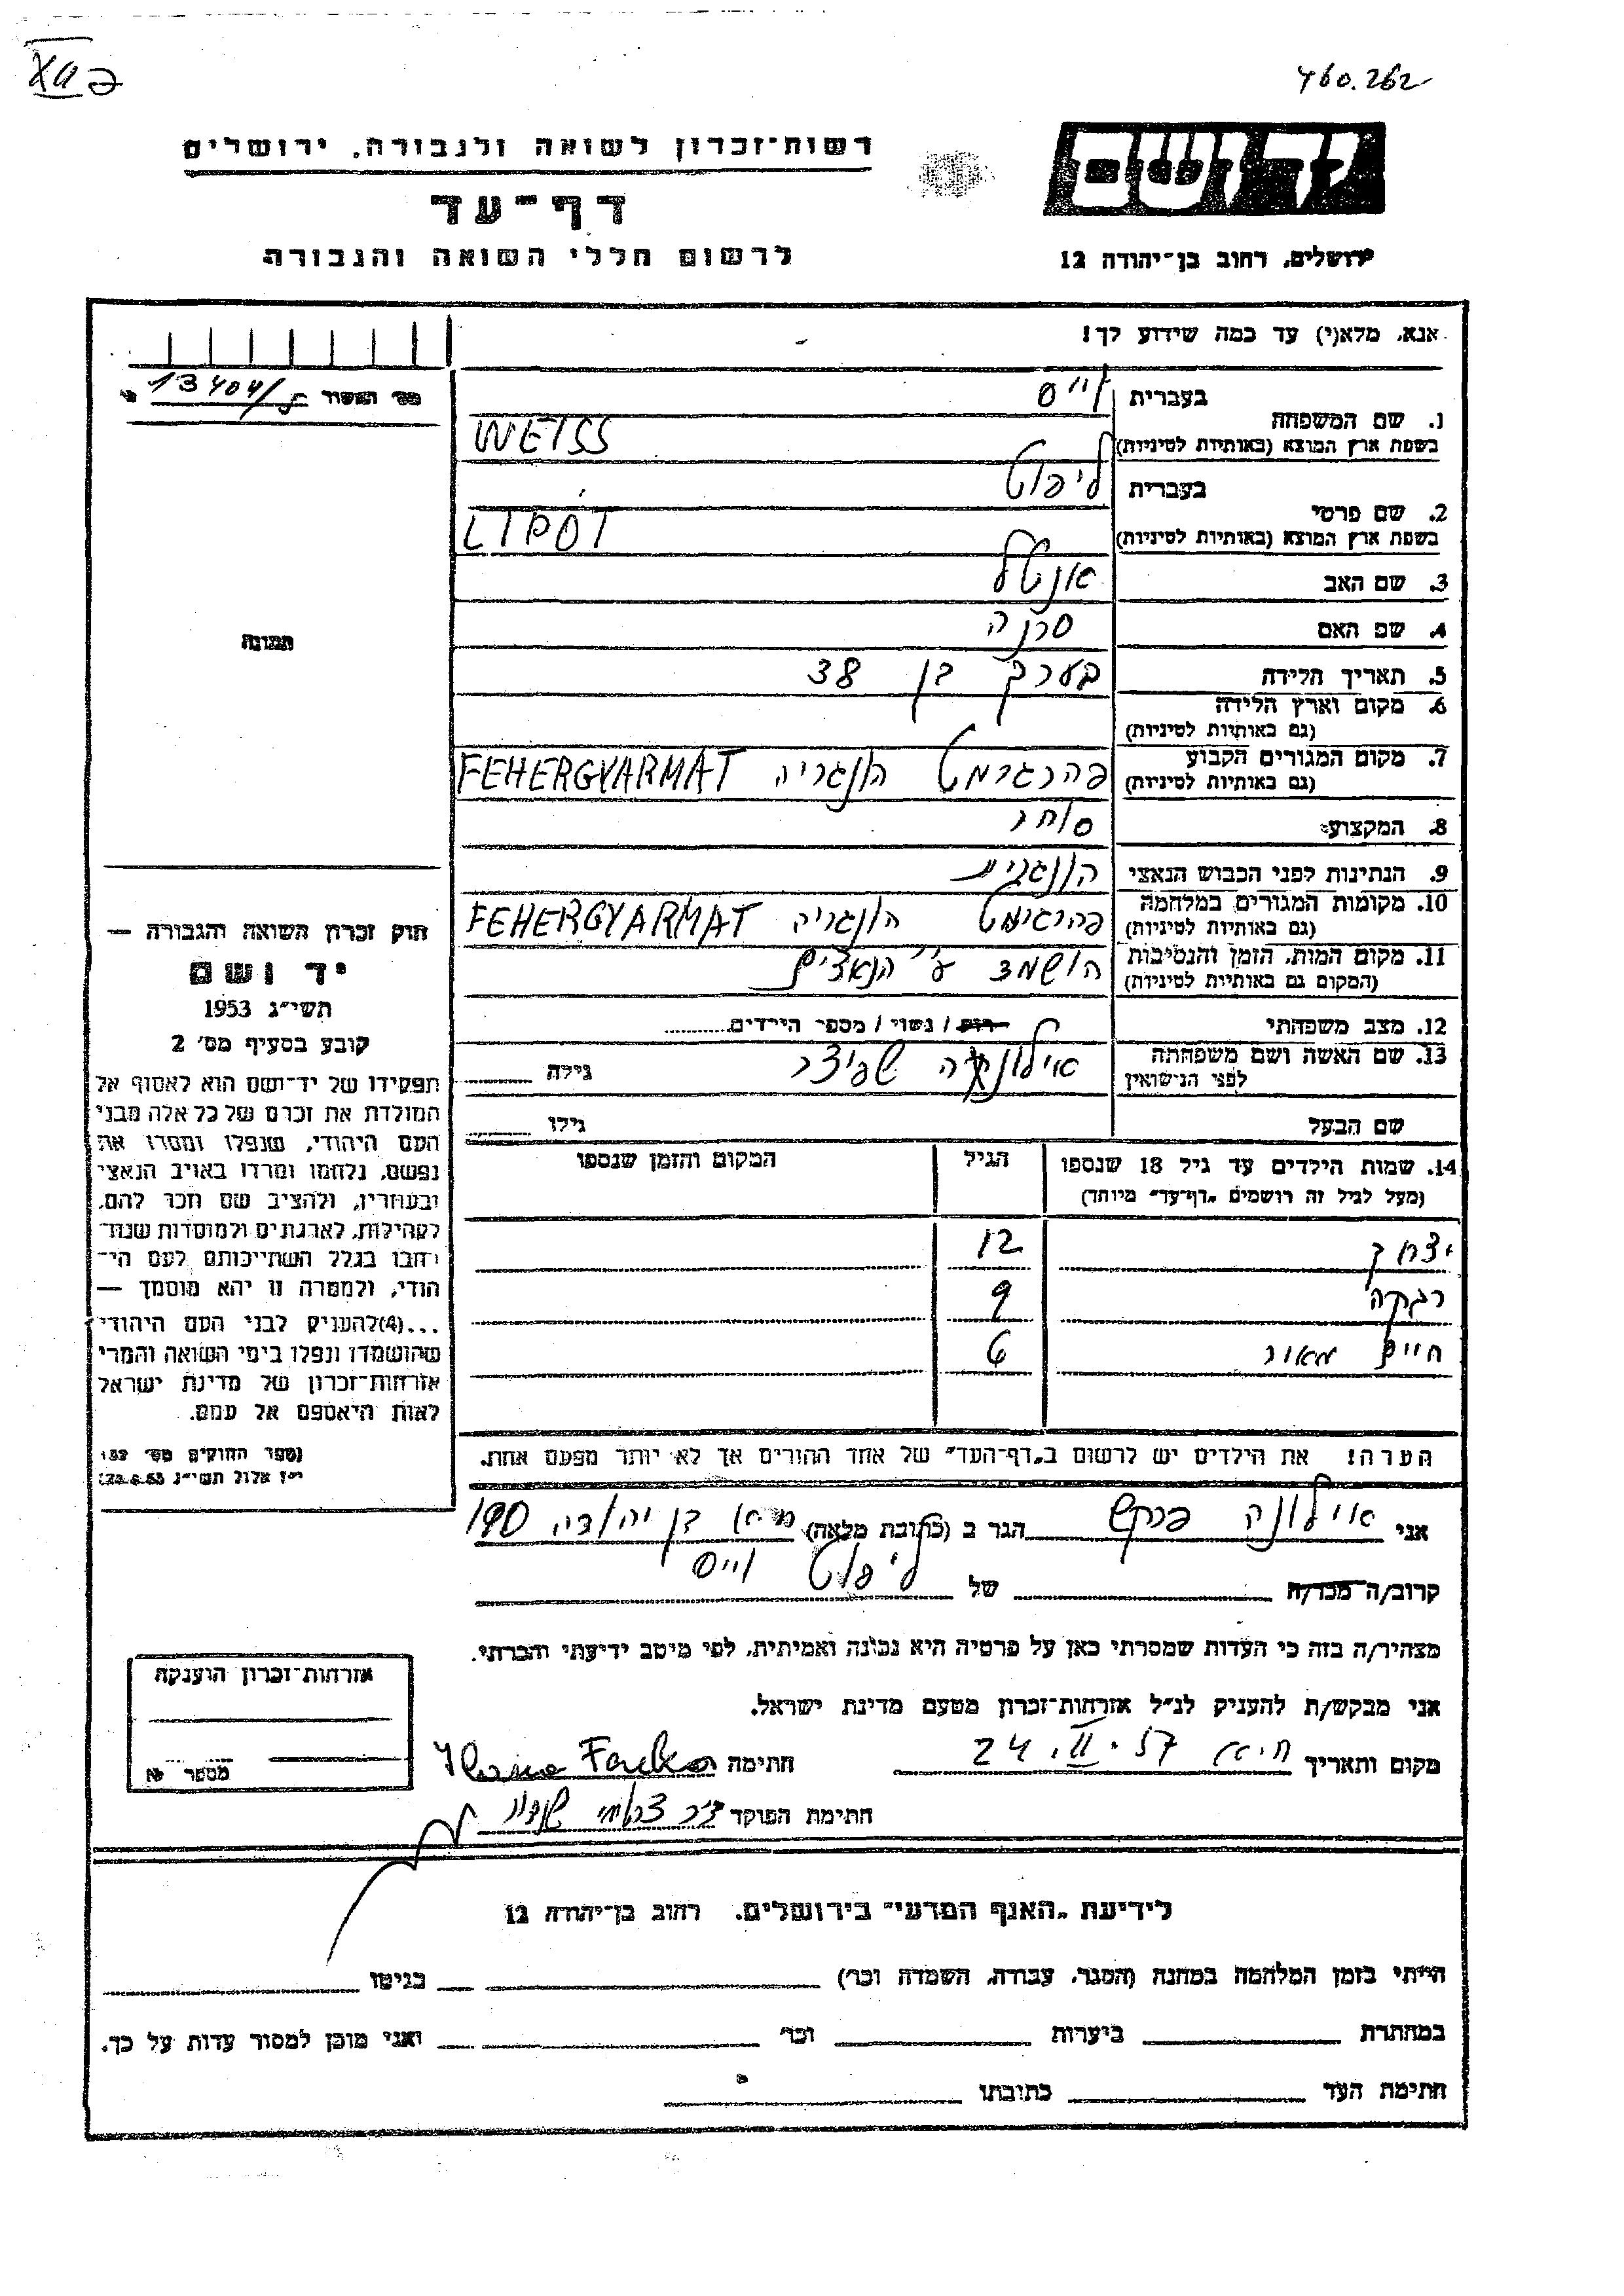 460.262
רשות־זכרון לשואה ולגבורה, ירושלים
דף־עד
לרשום חללי השואה והגבורה
יד ושם
ירושלים, רחוב בן־יהודה 12
אנא, מלא(י) עד כמה שידוע לך!
1. שם המשפחה
בעברית
וייס
בשפת ארץ המוצא (באותיות לטיניות)
WEISS
2. שם פרטי
בעברית
ליפוט
בשפת ארץ המוצא (באותיות לטיניות)
LIPÓT
3. שם האב
4. שם האם
5. תאריך הלידה
בערך בן 38
6. מקום וארץ הלידה
(גם באותיות לטיניות)
7. מקום המגורים הקבוע
(גם באותיות לטיניות)
פהרגרמט הונגריה FEHERGYARMAT
8. המקצוע
סוחר
9. הנתינות לפני הכבוש הנאצי
הונגרית
10. מקומות המגורים במלחמה
(גם באותיות לטיניות)
הונגריה FEHERGYARMAT
11. מקום המות, הזמן והנסיבות
(המקום גם באותיות לטיניות)
הושמד ע״י הנאצים
12. מצב משפחתי
רווק / נשוי / מספר הילדים
13. שם האשה ושם משפחתה
לפני הנישואין
שפיצר
גילה
שם הבעל
גילו
14. שמות הילדים עד גיל 18 שנספו
(מעל לגיל זה רושמים „דף־עד״ מיוחד)
הגיל
המקום והזמן שנספו
יצחק 12
רבקה 9
חיים מאור 6
הערה: את הילדים יש לרשום ב„דף־העד״ של אחד ההורים אך לא יותר מפעם אחת.
מס׳ האשור
13404/
תמונה
חוק זכרון השואה והגבורה —
יד ושם
תשי״ג 1953
קובע בסעיף מס׳ 2
תפקידו של יד־ושם הוא לאסוף אל
המולדת את זכרם של כל אלה מבני
העם היהודי, שנפלו ומסרו את
נפשם, נלחמו ומרדו באויב הנאצי
ובעוזריו, ולהציב שם וזכר להם,
לקהילות, לארגונים ולמוסדות שנח־
רבו בגלל השתייכותם לעם הי־
הודי, ולמטרה זו יהא מוסמך —
...(4)להעניק לבני העם היהודי
שהושמדו ונפלו בימי השואה והמרי
אזרחות־זכרון של מדינת ישראל
לאות היאספם אל עמם.
(ספר החוקים מס׳ 132
י״ז אלול תשי״ג 28.8.53)
אני אילונה פרקש הגר ב (כתובת מלאה) בן יהודה 190
קרוב/ה מכר/ה של ליפוט וייס
מצהיר/ה בזה כי העדות שמסרתי כאן על פרטיה היא נכונה ואמיתית, לפי מיטב ידיעתי והכרתי.
אני מבקש/ת להעניק לנ״ל אזרחות־זכרון מטעם מדינת ישראל.
מקום ותאריך 24.II.57 חתימה Ilona Farkas
חתימת הפוקד
אזרחות־זכרון הוענקה
מספר №
לידיעת „האגף המדעי״ בירושלים, רחוב בן־יהודה 12
הייתי בזמן המלחמה במחנה (הסגר, עבודה, השמדה וכו׳) בגיטו
במחתרת ביערות וכו׳ ואני מוכן למסור עדות על כך.
חתימת העד כתובתו